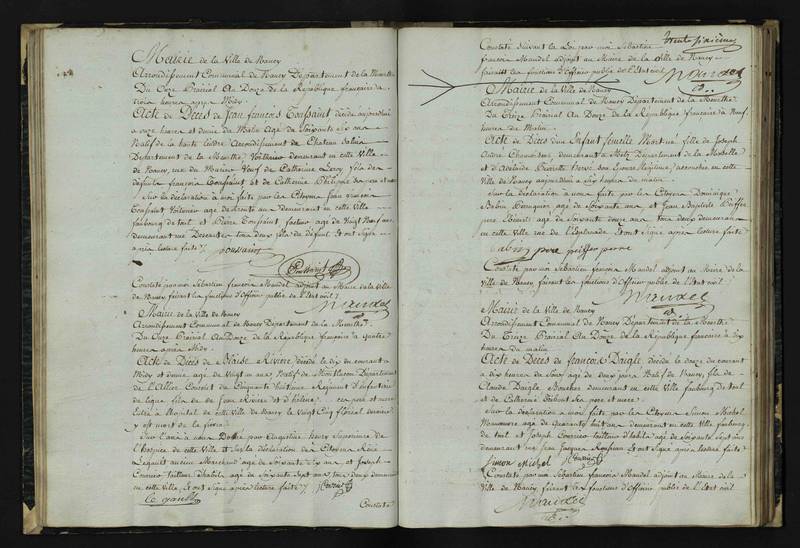 Mairie de la Ville de Nancy
Arrondissement Communal de Nancy Département de la Meurthe
Du Onze Prairial An Douze de la République française à
trois heures après Midy
Acte de Décès de Jean françois Toussaint décédé aujourdhui
à onze heures et demie du Matin Agé de Soixante six ans
Natif de la haute Arrondissement de Chateau Salin
Département de la Meurthe Voiturier demeurant en cette Ville
de Nancy, rue du Veuf de Catherine Leroy fils de
défunts françois Toussaint et de Catherine Philippe
Sur la déclaration à moi faite par les Citoyens Jean françois
Toussaint Voiturier agé de trente ans demeurant en cette Ville
faubourg de toul et Pierre Toussaint facteur agé de Vingt Neuf ans
demeurant rue Descartes tous deux fils du défunt et ont Signé
après lecture faite
toussaint
Toussaint
Constaté par moi Sébastien françois Mandel adjoint au Maire de la Ville
de Nancy faisant les fonctions d'Officier public de l'Etat civil
Mandel
Mairie de la Ville de Nancy
Arrondissement Communal de Nancy Département de la Meurthe
Du Onze Prairial An Douze de la République française à quatre
heures après Midy
Acte de Décès de Blaise Rivière décédé le dix du courant à
Midy et demie agé de Vingt un ans Natif de Montluçon Département
de l'Allier Conscrit du Cinquante huitième Régiment d'infanterie
de ligne fils de Jean Rivière et d'hélène père et mère
Entré à l'hopital de cette Ville de Nancy le Vingt Cinq floréal dernier
y est mort de la fièvre
Sur l'avis à nous Donné par Augustine henry Supérieure de
l'hospice de cette Ville et sur la déclaration des Citoyens
Marchand agé de Soixante six ans et Joseph
Courrier tailleur d'habits agé de Soixante Sept ans tous deux demeurant
en cette Ville, et ont Signé après lecture faite
Constaté
trente sixième
Constaté Suivant la Loi par moi Sébastien
françois Mandel adjoint au Maire de la Ville de Nancy
faisant les fonctions d'Officier public de l'Etat civil
Mandel
Mairie de la Ville de Nancy
Arrondissement Communal de Nancy Département de la Meurthe
Du Treize Prairial An Douze de la République française à Neuf
heures du Matin
Acte de Décès d'un Enfant femelle Mort né fille de Joseph
André demeurant à Metz Département de la Moselle
et d'Adélaïde Son Epouse légitime, accouchée en cette
Ville de Nancy aujourdhui à six heures du matin
Sur la déclaration à moi faite par les Citoyens Dominique
Babin agé de Soixante ans et Jean Baptiste Peiffer
père agé de Soixante douze ans tous deux demeurant
en cette Ville rue de l'Esplanade et ont signé après lecture faite
babin père peiffer perre
Constaté par moi Sébastien françois Mandel adjoint au Maire de la
Ville de Nancy faisant les fonctions d'Officier public de l'Etat civil
Mandel
Mairie de la Ville de Nancy
Arrondissement Communal de Nancy Département de la Meurthe
Du Treize Prairial An Douze de la République française à dix
heures du matin
Acte de Décès de françois Daigle décédé le douze du courant
à dix heures du Soir agé de deux jours Natif de Nancy, fils de
Claude Daigle Boucher demeurant en cette Ville faubourg de toul
et de Catherine Ses père et mère
Sur la déclaration à moi faite par les Citoyens Simon Michel
Manœuvre agé de quarante huit ans demeurant en cette Ville faubourg
de toul et Joseph Courrier tailleur d'habits agé de Soixante Sept ans
demeurant rue Jean Jacques Rousseau Et ont signé après lecture faite
Simon Michel
Constaté par moi Sébastien françois Mandel adjoint au Maire de la
Ville de Nancy faisant les fonctions d'Officier public de l'Etat civil
Mandel